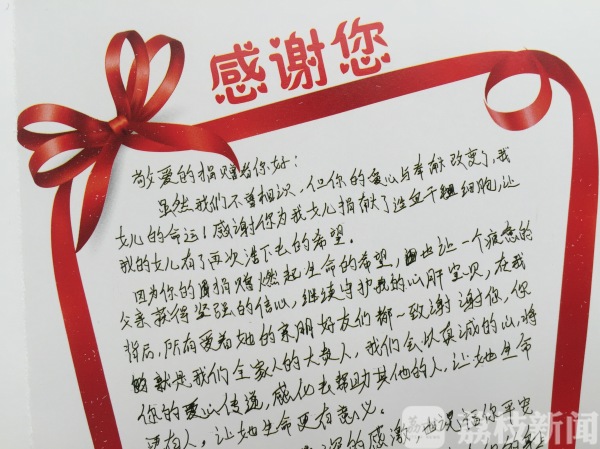 感谢您
敬爱的捐赠者你好：
虽然我们不曾相识，但你的爱心与奉献改变了我
女儿的命运！感谢你为我女儿捐献了造血干细胞，让
我的女儿有了再次活下去的希望。
因为你的捐赠燃起生命的希望，也让一个疲惫的
父亲获得坚强的信心，继续守护我的心肝宝贝，在我
背后，所有爱着她的亲朋好友们都一致谢谢你，你
就是我们全家人的大恩人，我们会以真诚的心，将
你的爱心传递，感化去帮助其他的人，让她生命
更有人，让她生命更有意义。
深的感激 祝福你平安
荔枝新闻